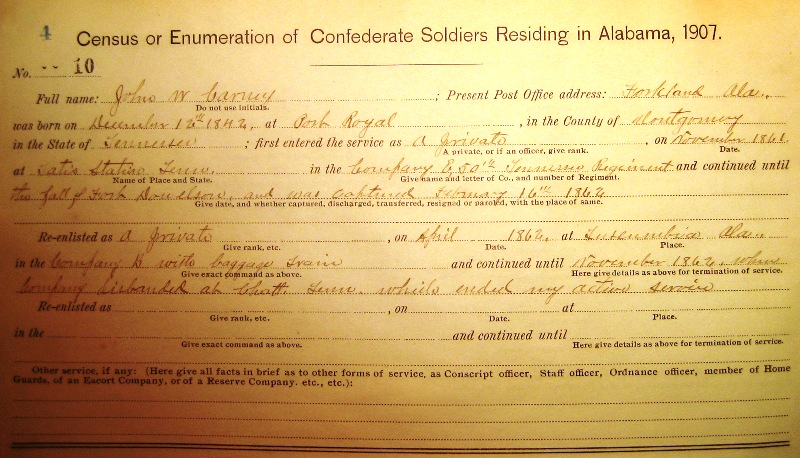 4 Census or Enumeration of Confederate Soldiers Residing in Alabama, 1907.
No. 10
Full name: John W Carney ; Present Post Office address: Forkland Ala.
Do not use initials.
was born on December 12th 1842, at Port Royal , in the County of Montgomery
in the State of Tennessee ; first entered the service as A Private , on November 1861
A private, or if an officer, give rank. Date.
at Station Tenn. in the Company E, 50th Tennessee Regiment and continued until
Name of Place and State. Give name and letter of Co., and number of Regiment.
the fall of Fort Donelson, and was captured February 16th 1862
Give date, and whether captured, discharged, transferred, resigned or paroled, with the place of same.
Re-enlisted as A Private , on April 1862 at Tuscumbia Ala.
Give rank, etc. Date. Place.
in the Company with baggage Train and continued until November 1862, when
Give exact command as above. Here give details as above for termination of service.
Company disbanded at Chatt. Tenn. which ended my active service
Re-enlisted as , on at
Give rank, etc. Date. Place.
in the and continued until
Give exact command as above. Here give details as above for termination of service.
Other service, if any: (Here give all facts in brief as to other forms of service, as Conscript officer, Staff officer, Ordnance officer, member of Home
Guards, of an Escort Company, or of a Reserve Company. etc., etc.):